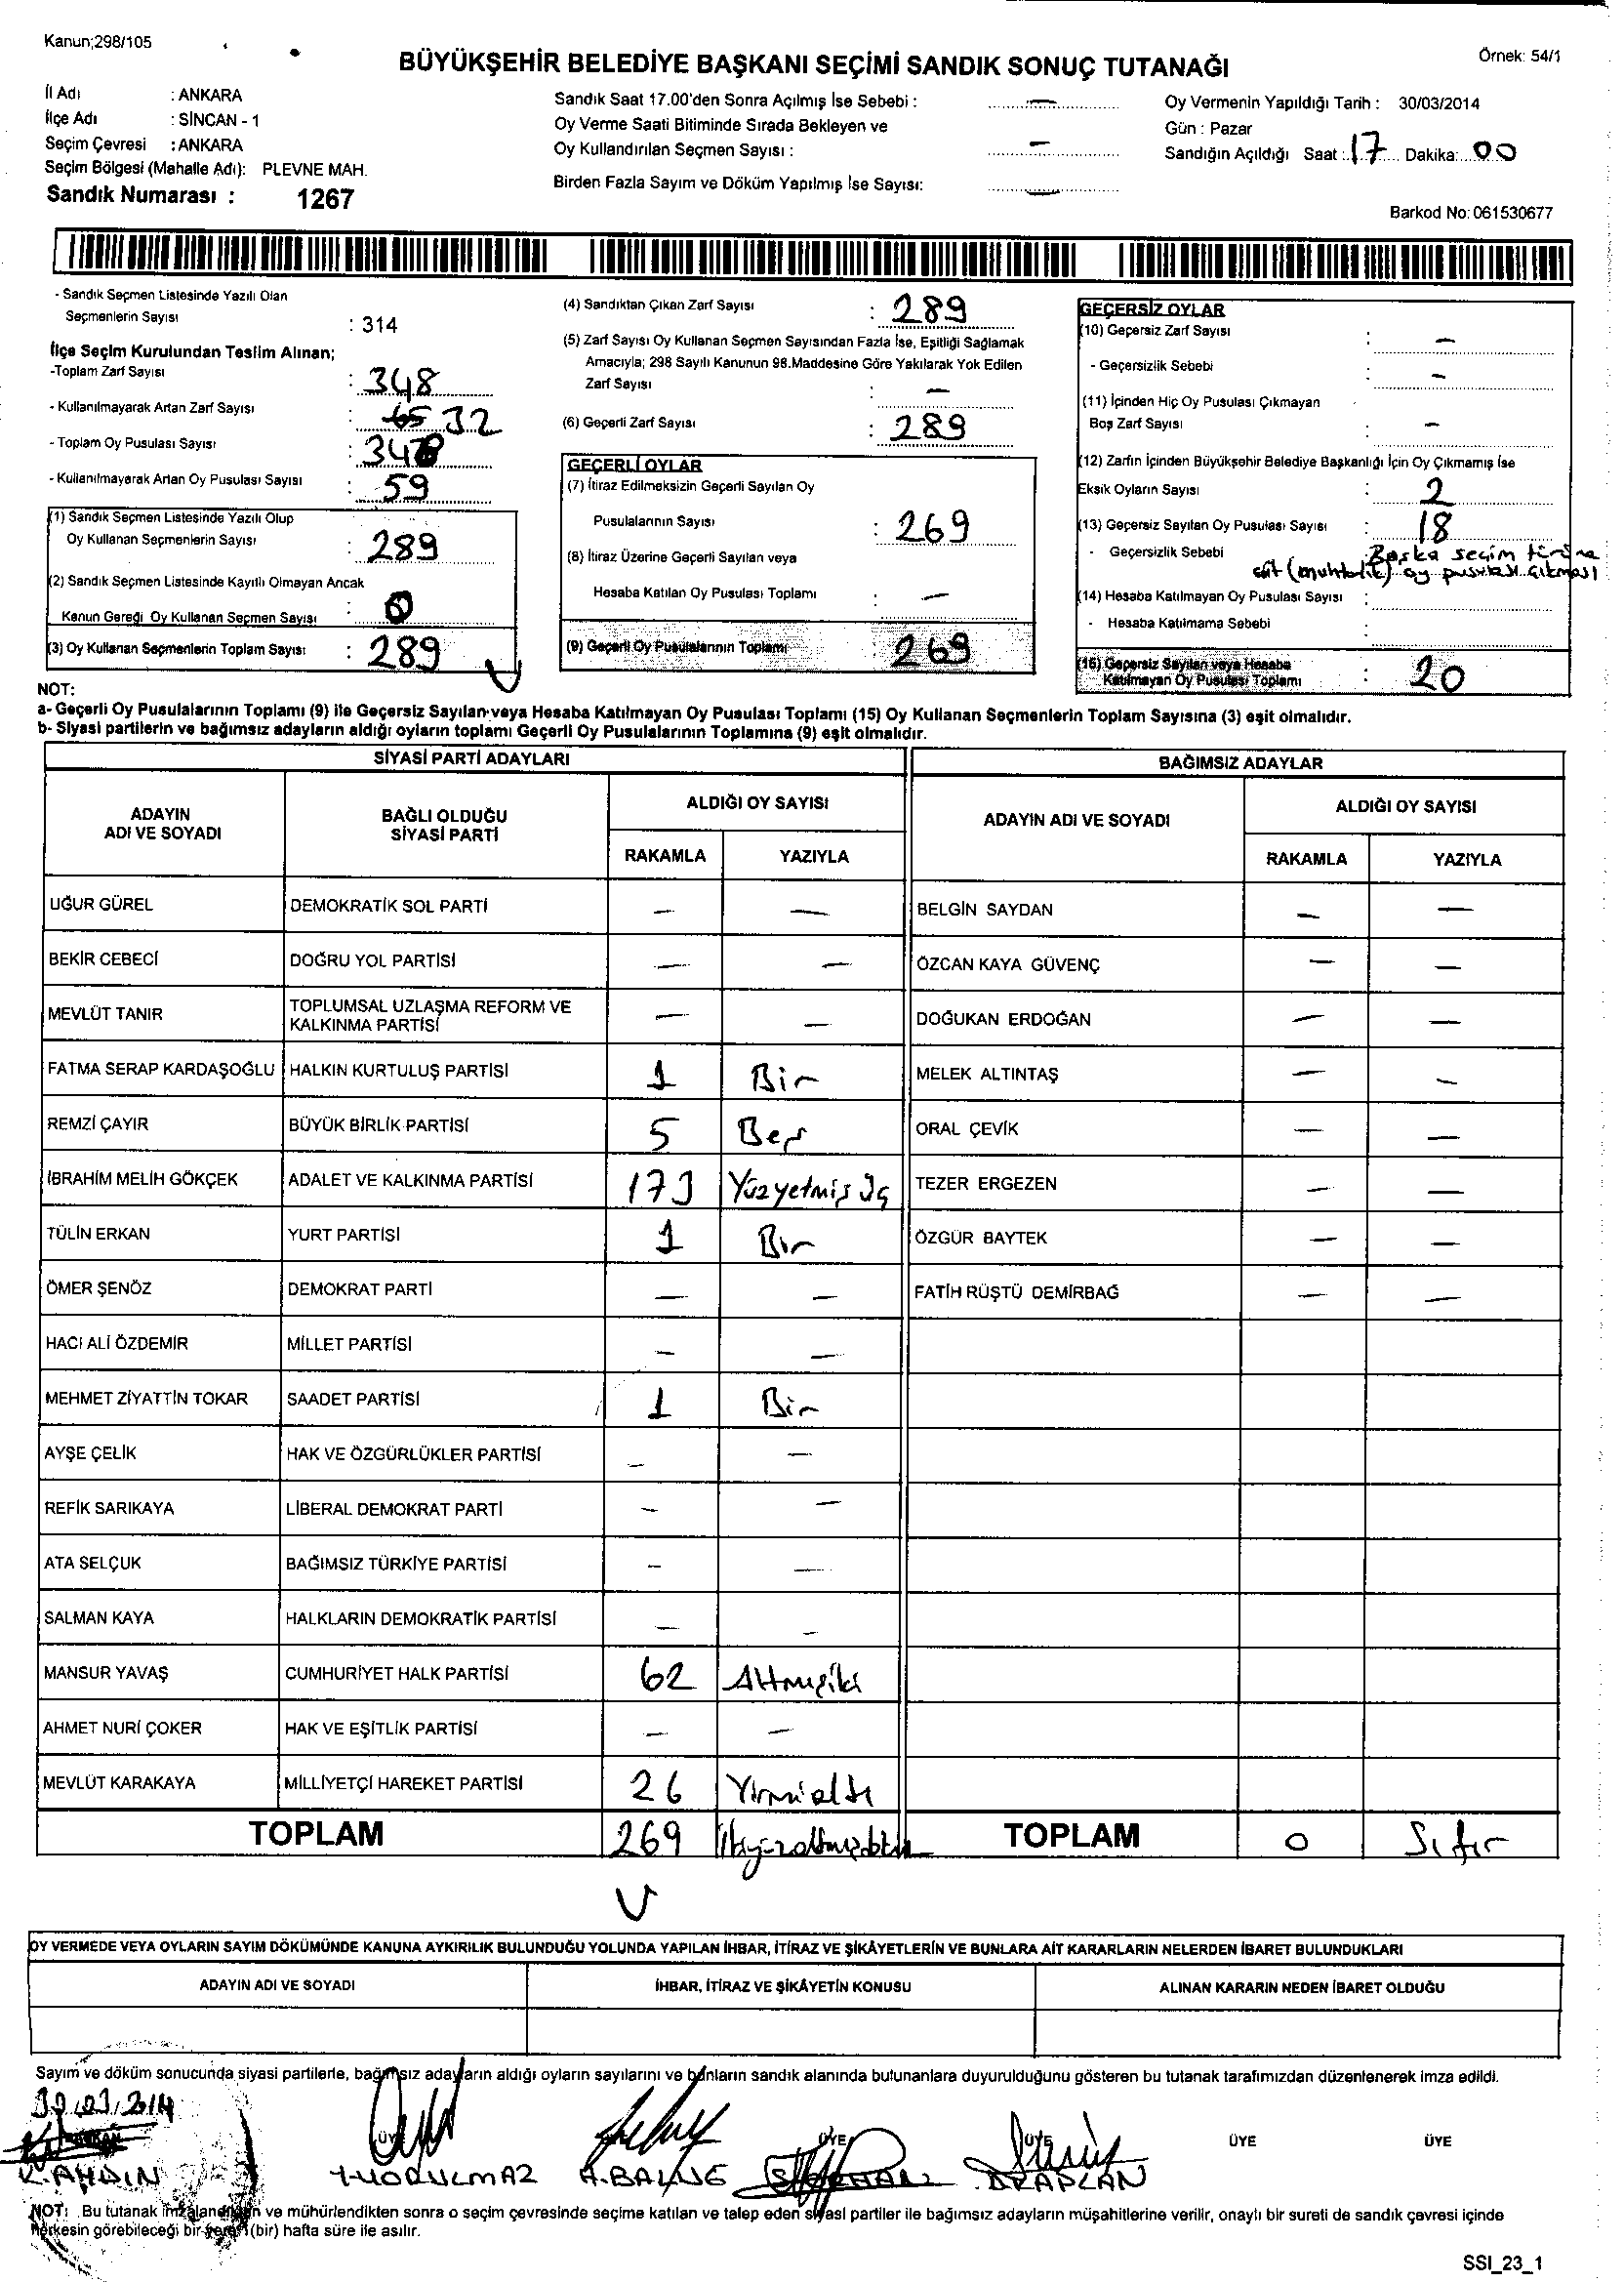 Kanun;298/105
Örnek: 54/1
BÜYÜKŞEHİR BELEDİYE BAŞKANI SEÇİMİ SANDIK SONUÇ TUTANAĞI
İl Adı : ANKARA
İlçe Adı : SİNCAN - 1
Seçim Çevresi : ANKARA
Seçim Bölgesi (Mahalle Adı): PLEVNE MAH.
Sandık Numarası : 1267
Sandık Saat 17.00'den Sonra Açılmış İse Sebebi : —
Oy Verme Saati Bitiminde Sırada Bekleyen ve
Oy Kullandırılan Seçmen Sayısı : —
Birden Fazla Sayım ve Döküm Yapılmış İse Sayısı: —
Oy Vermenin Yapıldığı Tarih : 30/03/2014
Gün : Pazar
Sandığın Açıldığı Saat : 17 Dakika: 00
Barkod No: 061530677
- Sandık Seçmen Listesinde Yazılı Olan
Seçmenlerin Sayısı : 314
İlçe Seçim Kurulundan Teslim Alınan;
-Toplam Zarf Sayısı : 348
- Kullanılmayarak Artan Zarf Sayısı : 32
- Toplam Oy Pusulası Sayısı : 348
- Kullanılmayarak Artan Oy Pusulası Sayısı : 59
(1) Sandık Seçmen Listesinde Yazılı Olup
Oy Kullanan Seçmenlerin Sayısı : 289
(2) Sandık Seçmen Listesinde Kayıtlı Olmayan Ancak
Kanun Gereği Oy Kullanan Seçmen Sayısı : 0
(3) Oy Kullanan Seçmenlerin Toplam Sayısı : 289
(4) Sandıktan Çıkan Zarf Sayısı : 289
(5) Zarf Sayısı Oy Kullanan Seçmen Sayısından Fazla İse, Eşitliği Sağlamak
Amacıyla; 298 Sayılı Kanunun 98.Maddesine Göre Yakılarak Yok Edilen
Zarf Sayısı : —
(6) Geçerli Zarf Sayısı : 289
GEÇERLİ OYLAR
(7) İtiraz Edilmeksizin Geçerli Sayılan Oy
Pusulalarının Sayısı : 269
(8) İtiraz Üzerine Geçerli Sayılan veya
Hesaba Katılan Oy Pusulası Toplamı : —
(9) Geçerli Oy Pusulalarının Toplamı 269
GEÇERSİZ OYLAR
(10) Geçersiz Zarf Sayısı : —
- Geçersizlik Sebebi : —
(11) İçinden Hiç Oy Pusulası Çıkmayan
Boş Zarf Sayısı : —
(12) Zarfın İçinden Büyükşehir Belediye Başkanlığı İçin Oy Çıkmamış İse
Eksik Oyların Sayısı : 2
(13) Geçersiz Sayılan Oy Pusulası Sayısı : 18
- Geçersizlik Sebebi Başka seçim türüne
ait (muhtarlık) oy pusulası çıkması
(14) Hesaba Katılmayan Oy Pusulası Sayısı :
- Hesaba Katılmama Sebebi :
(15) Geçersiz Sayılan veya Hesaba
Katılmayan Oy Pusulası Toplamı : 20
NOT:
a- Geçerli Oy Pusulalarının Toplamı (9) ile Geçersiz Sayılan veya Hesaba Katılmayan Oy Pusulası Toplamı (15) Oy Kullanan Seçmenlerin Toplam Sayısına (3) eşit olmalıdır.
b- Siyasi partilerin ve bağımsız adayların aldığı oyların toplamı Geçerli Oy Pusulalarının Toplamına (9) eşit olmalıdır.
SİYASİ PARTİ ADAYLARI
ADAYIN
ADI VE SOYADI
BAĞLI OLDUĞU
SİYASİ PARTİ
ALDIĞI OY SAYISI
RAKAMLA YAZIYLA
UĞUR GÜREL DEMOKRATİK SOL PARTİ — —
BEKİR CEBECİ DOĞRU YOL PARTİSİ — —
MEVLÜT TANIR TOPLUMSAL UZLAŞMA REFORM VE
KALKINMA PARTİSİ — —
FATMA SERAP KARDAŞOĞLU HALKIN KURTULUŞ PARTİSİ 1 Bir
REMZİ ÇAYIR BÜYÜK BİRLİK PARTİSİ 5 Beş
İBRAHİM MELİH GÖKÇEK ADALET VE KALKINMA PARTİSİ 173 Yüzyetmiş üç
TÜLİN ERKAN YURT PARTİSİ 1 Bir
ÖMER ŞENÖZ DEMOKRAT PARTİ — —
HACI ALİ ÖZDEMİR MİLLET PARTİSİ — —
MEHMET ZİYATTİN TOKAR SAADET PARTİSİ 1 Bir
AYŞE ÇELİK HAK VE ÖZGÜRLÜKLER PARTİSİ — —
REFİK SARIKAYA LİBERAL DEMOKRAT PARTİ — —
ATA SELÇUK BAĞIMSIZ TÜRKİYE PARTİSİ — —
SALMAN KAYA HALKLARIN DEMOKRATİK PARTİSİ — —
MANSUR YAVAŞ CUMHURİYET HALK PARTİSİ 62 Altmışiki
AHMET NURİ ÇOKER HAK VE EŞİTLİK PARTİSİ — —
MEVLÜT KARAKAYA MİLLİYETÇİ HAREKET PARTİSİ 26 Yirmialtı
TOPLAM 269 İkiyüzaltmışdokuz
BAĞIMSIZ ADAYLAR
ADAYIN ADI VE SOYADI
ALDIĞI OY SAYISI
RAKAMLA YAZIYLA
BELGİN SAYDAN — —
ÖZCAN KAYA GÜVENÇ — —
DOĞUKAN ERDOĞAN — —
MELEK ALTINTAŞ — —
ORAL ÇEVİK — —
TEZER ERGEZEN — —
ÖZGÜR BAYTEK — —
FATİH RÜŞTÜ DEMİRBAĞ — —
TOPLAM 0 Sıfır
OY VERMEDE VEYA OYLARIN SAYIM DÖKÜMÜNDE KANUNA AYKIRILIK BULUNDUĞU YOLUNDA YAPILAN İHBAR, İTİRAZ VE ŞİKÂYETLERİN VE BUNLARA AİT KARARLARIN NELERDEN İBARET BULUNDUKLARI
ADAYIN ADI VE SOYADI
İHBAR, İTİRAZ VE ŞİKÂYETİN KONUSU
ALINAN KARARIN NEDEN İBARET OLDUĞU
Sayım ve döküm sonucunda siyasi partilerle, bağımsız adayların aldığı oyların sayılarını ve bunların sandık alanında bulunanlara duyurulduğunu gösteren bu tutanak tarafımızdan düzenlenerek imza edildi.
30.03.2014
BAŞKAN ÜYE ÜYE ÜYE ÜYE ÜYE
K.AYDIN Y.YORULMAZ D.KAPLAN
NOT: Bu tutanak imzalandıktan ve mühürlendikten sonra o seçim çevresinde seçime katılan ve talep eden siyasi partiler ile bağımsız adayların müşahitlerine verilir, onaylı bir sureti de sandık çevresi içinde
herkesin görebileceği bir yere 1 (bir) hafta süre ile asılır.
SSI_23_1